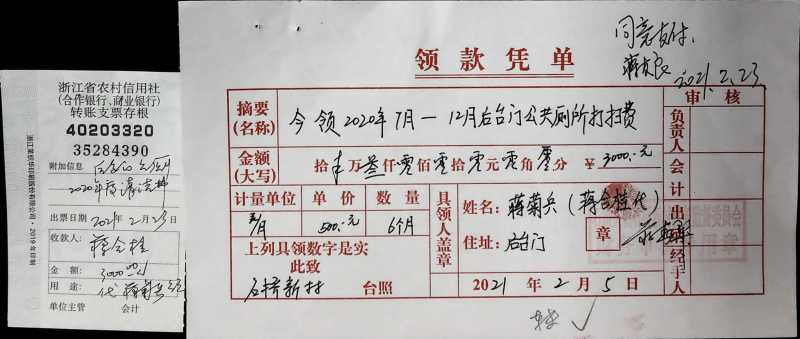 浙江省农村信用社
(合作银行、商业银行)
转账支票存根
40203320
35284390
附加信息
2020年度清洁费
出票日期 2021年2月23日
收款人:
蒋会桂
金 额: 3000.00
用 途: 代蒋菊兵
单位主管 会计
领款凭单
同意支付.
2021.2.23
摘要
(名称)
今领2020年7月—12月后台门公共厕所打扫费
金额
(大写)
拾 万叁仟零佰零拾零元零角零分 ¥3000.元
计量单位 单价 数量
元/月 500.元 6个月
上列具领数字是实
此致
石桥新村 台照
具领人盖章
姓名: 蒋菊兵(蒋会桂代)
住址: 后台门
章
2021年2月5日
审核
负责人
会计
出纳
经手人